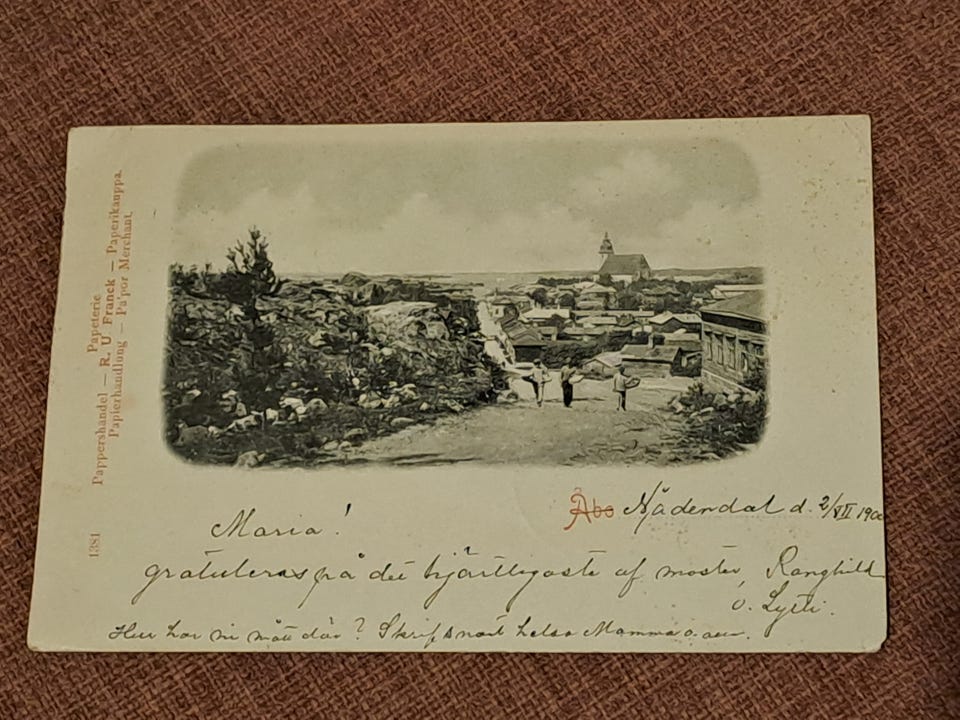 Papeterie
Pappershandel — R. U Franck — Paperikauppa.
Papierhandlung — Pa'per Merchant.
1381
Åbo Nådendal d. 2/VII 1900
Maria!
gratuleras på det hjärtligaste af moster, Ranghild
o. Lyÿli.
Hur har ni mått där? Skrif snart helsa Mamma o.